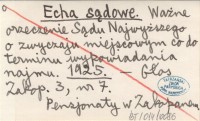 Echa sądowe. Ważne
orzeczenie Sądu Najwyższego
o zwyczaju miejscowym co do
terminu wypowiadania
najmu. 1925. – Głos
Zakop. 3, nr 7.
Pensjonaty w Zakopanem